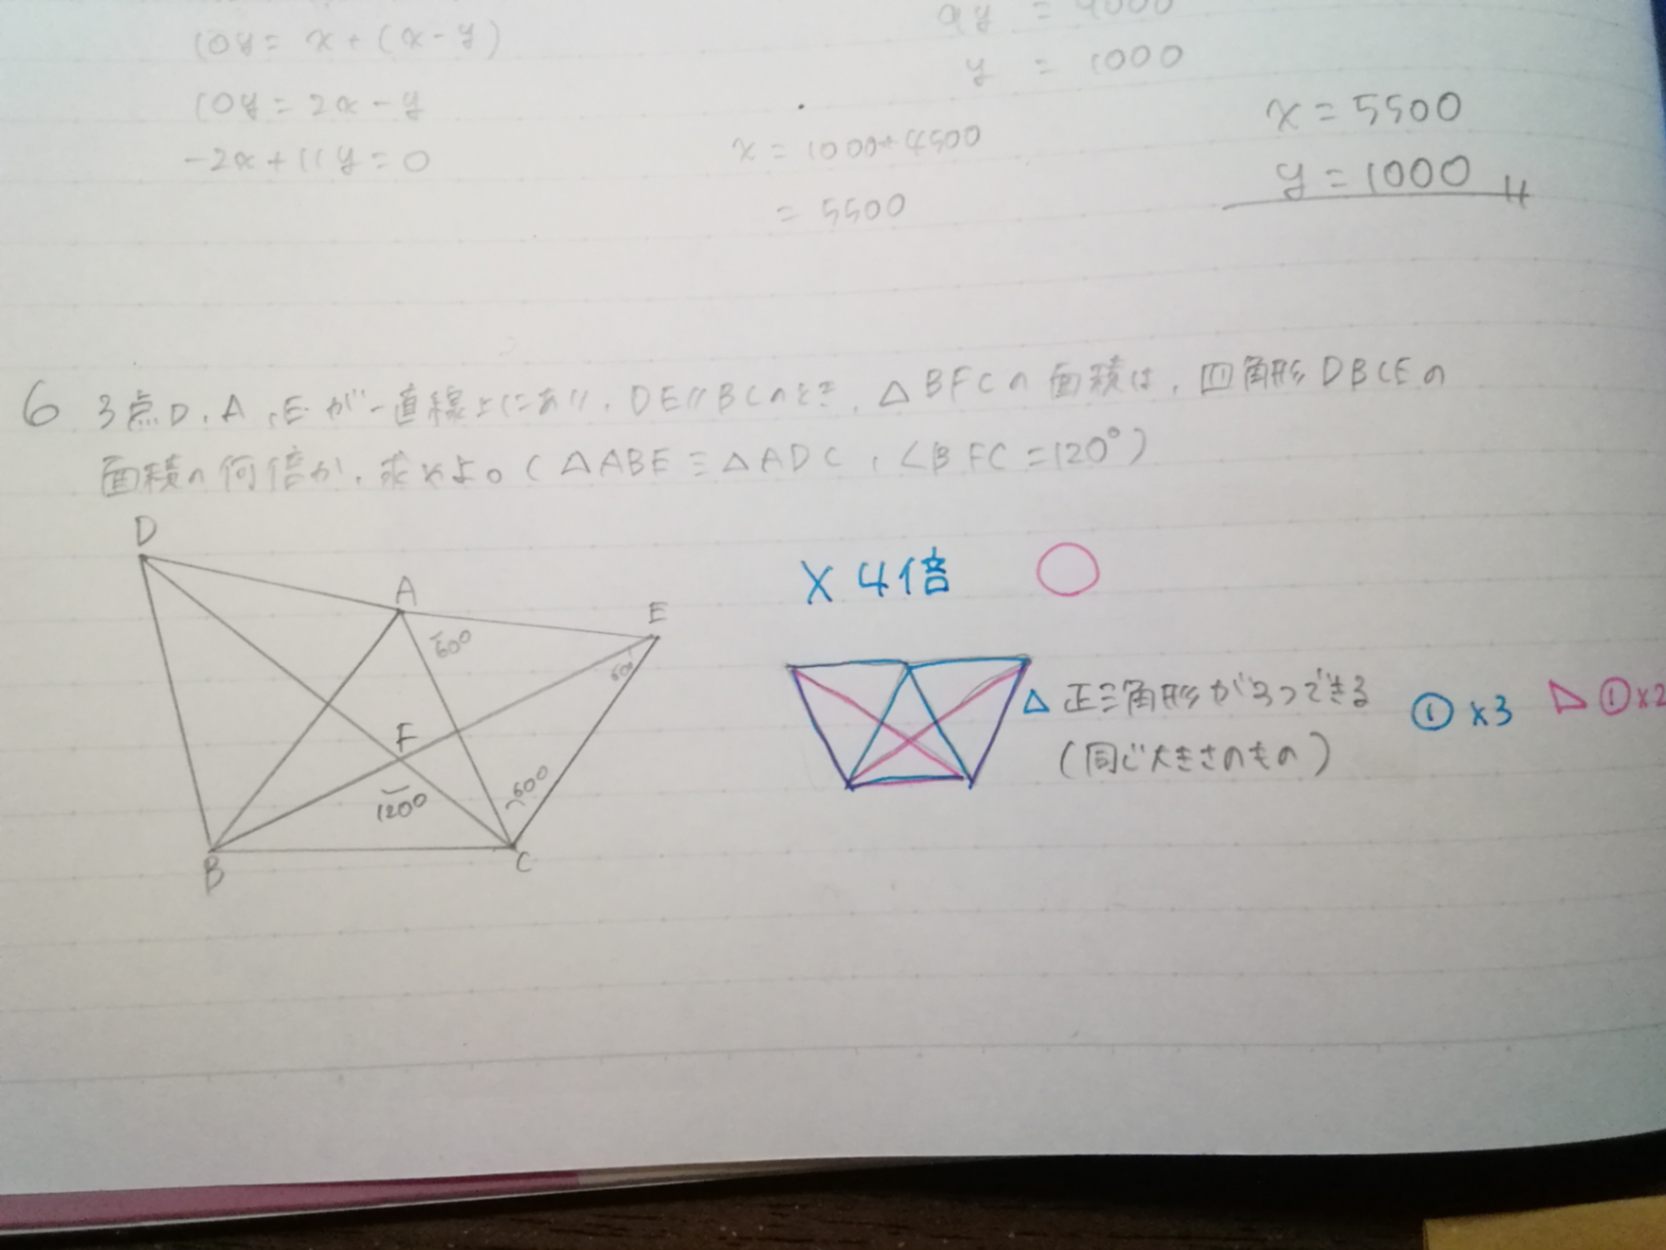 10y = x + (x - y)
10y = 2x - y
-2x + 11y = 0
y = 1000
x = 1000 + 4500
= 5500
x = 5500
y = 1000
6 3点D,A,Eが一直線上にあり、DE//BCのとき、△BFCの面積は、四角形DBCEの
面積の何倍か、求めよ。(△ABE≡△ADC,∠BFC=120°)
D
A
E
60°
60°
F
120°
60°
B
C
× 4倍 ○
△ 正三角形が3つできる ① ×3 ①×2
(同じ大きさのもの)